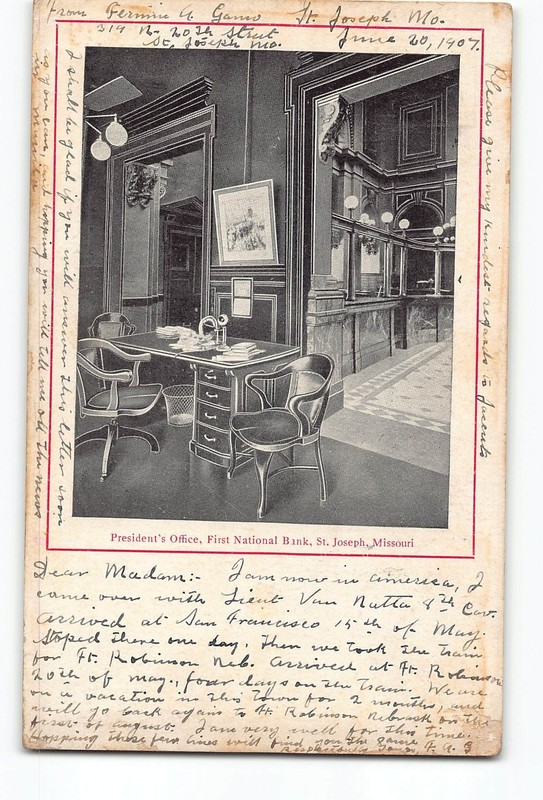 From Fermin A. Gamo St. Joseph Mo.
319 N. 20th Street June 20, 1907.
St. Joseph Mo.
Please give my kindest regards to
I shall be glad if you will answer this letter soon
as you can and hopping you will tell me all the news
President's Office, First National Bank, St. Joseph, Missouri
Dear Madam:- I am now in america, I
came over with Lieut Van Natta 8th Cav.
arrived at San Francisco 15th of May
stoped there one day, then we took the train
for Ft. Robinson Neb. arrived at Ft. Robinson
20th of may, four days on the train. We are
on a vacation in this town for 2 months, and
will go back again to Ft Robinson Nebrask on the
first of august. I am very well for this time.
Hopping these few lines will find you the same
F. A. G